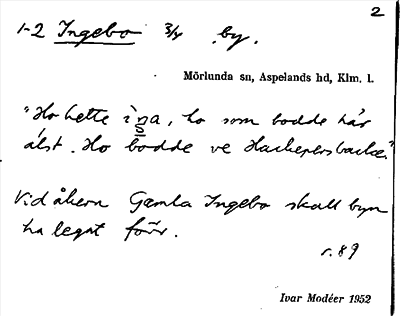 2
1-2 Ingebo 3/4 by.
Mörlunda sn, Aspelands hd, Klm. l.
"Ho hette inga, ho som bodde här
älst. Ho bodde ve Hackepersbacke."
Vid åkern Gamla Ingebo skall byn
ha legat förr.
r. 89
Ivar Modéer 1952